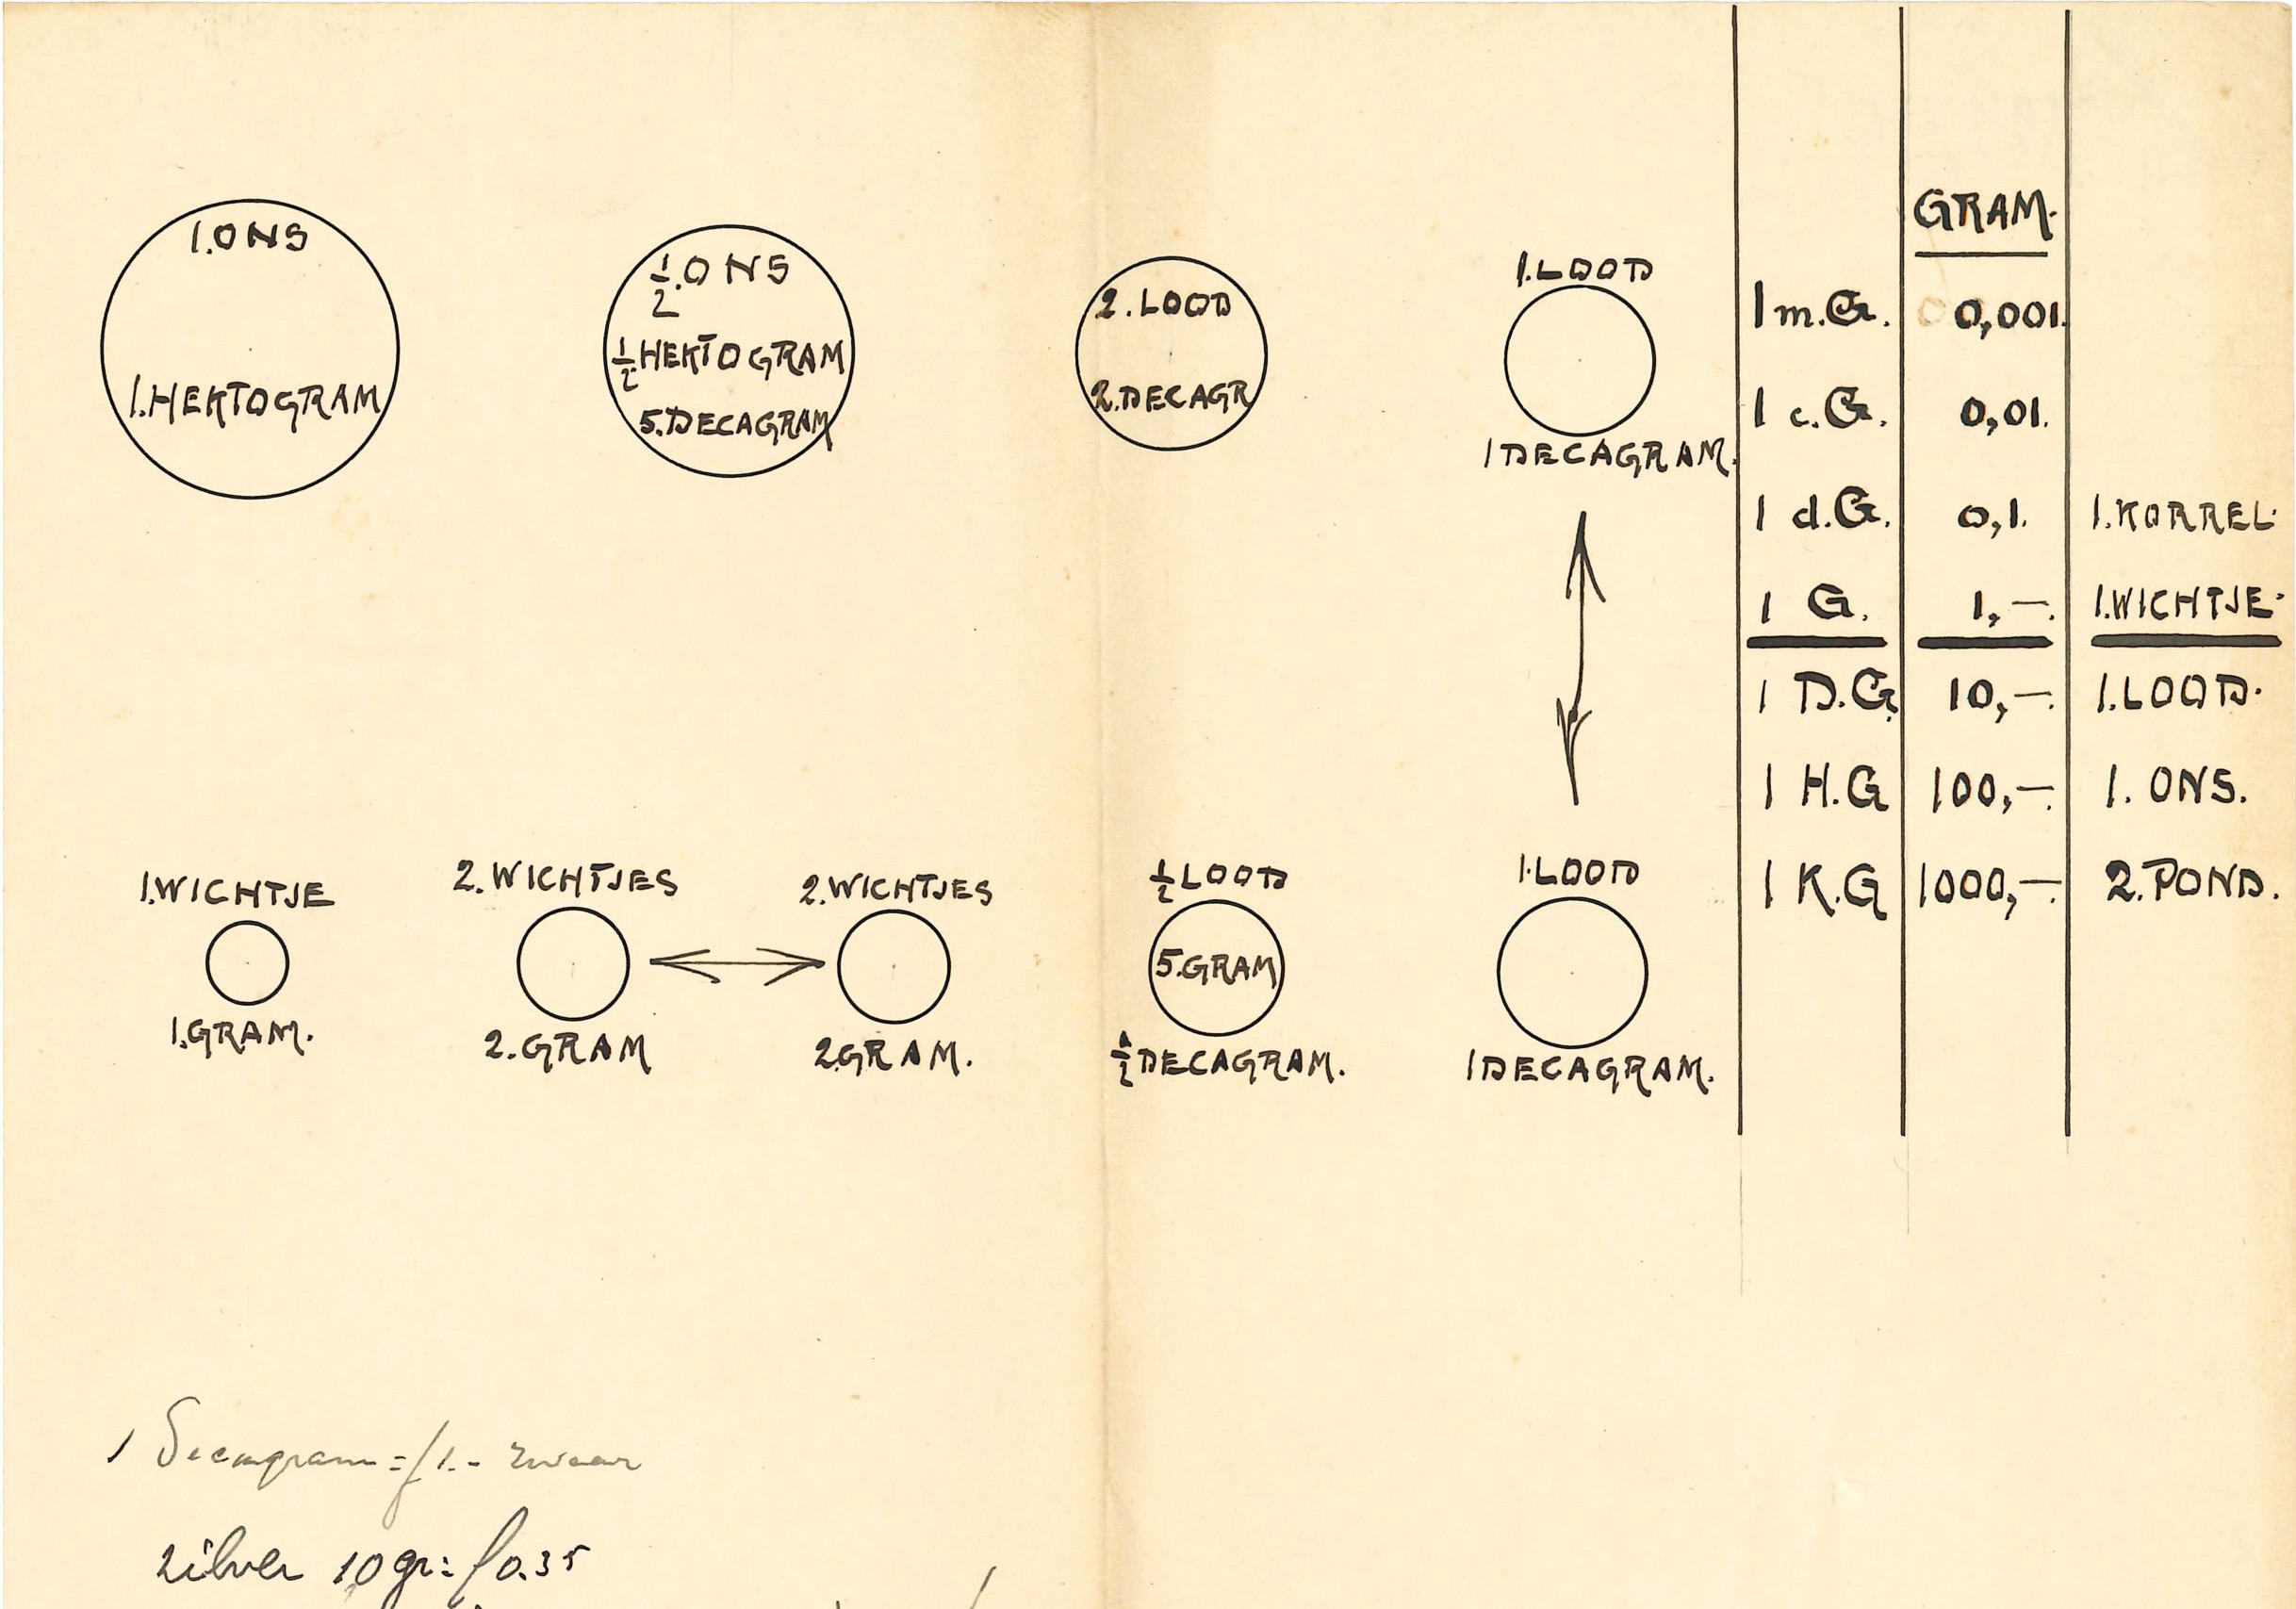 1.ONS
1.HEKTOGRAM
½.ONS
½HEKTOGRAM
5.DECAGRAM
2.LOOD
2.DECAGR
1.LOOD
1DECAGRAM.
1.WICHTJE
1.GRAM.
2.WICHTJES
2.GRAM
2.WICHTJES
2.GRAM.
½LOOD
5.GRAM
½DECAGRAM.
1.LOOD
1DECAGRAM.
GRAM.
1 m.G. 0,001.
1 c.G. 0,01.
1 d.G. 0,1. 1.KORREL.
1 G. 1,—. 1.WICHTJE.
1 D.G. 10,—. 1.LOOD.
1 H.G 100,—. 1. ONS.
1 K.G 1000,—. 2.POND.
1 Decagram = f1.- zwaar
zilver 10 gr: f0.35